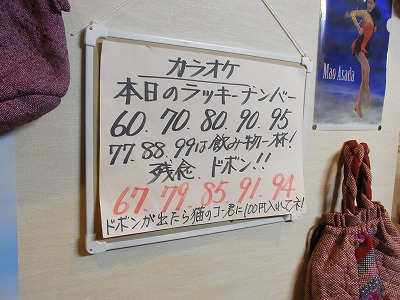 カラオケ
本日のラッキーナンバー
60.70.80.90.95
77.88.99は飲み物一杯!
残念 ドボン!!
67.79.85.91.94
ドボンが出たら猫のコン君に100円入れてネ!
Mao Asada